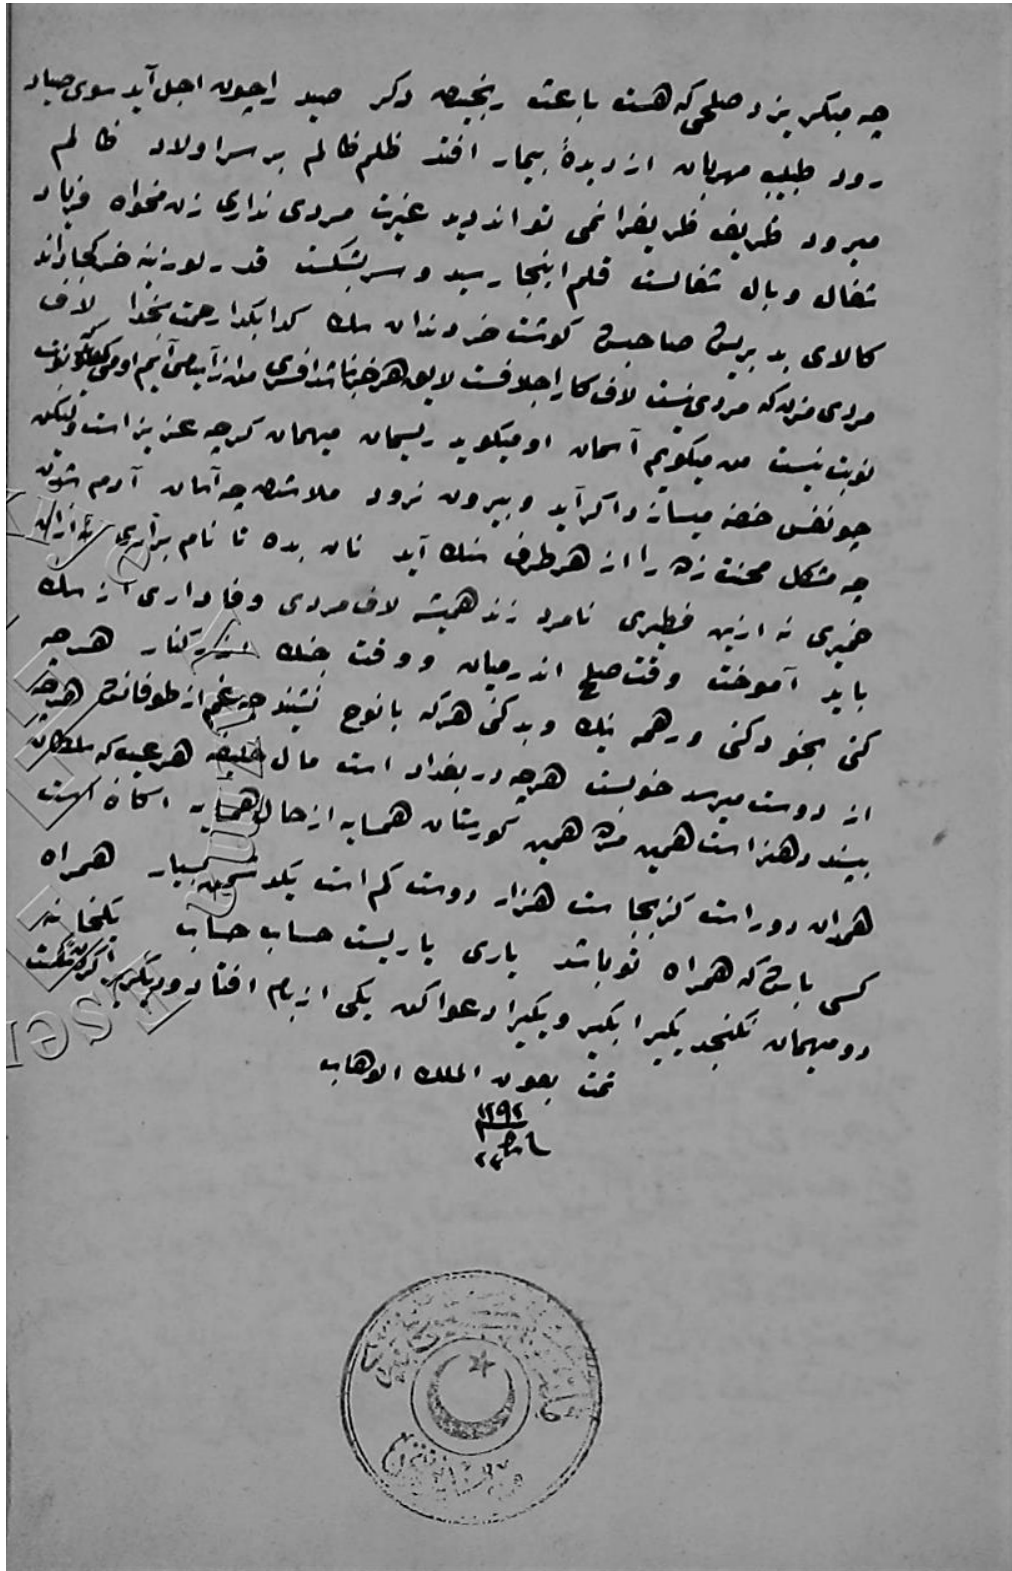 چه میکریزد صلحی که هست باعث رنجیدن دکر صید را چون اجل آید سوی صیاد
رود طبیب مهربان از دیدهٔ بیمار افتد ظلم ظالم بر سر اولاد ظالم
میرود ظریف ظریفرا نمی تواند دید غیرت مردی نداری زن مخواه فریاد
شغال و بال شغالست قلم اینجا رسید و سر بشکست قدر لوزینه خر کجا داند
کالای بد بریش صاحبش کوشت خر دندان سك کدا بکدا رحمت بخدا لاف
مردی مزن که مردی نیست لاف کار اجلافست لایق هر خر نباشد من از آسیا می آیم او می کوید
نوبت نیست من میکویم آسمان او میکوید ریسمان میهمان کرچه عزیز است ولیکن
چو نفس خفه میسازد اکر آید و بیرون نرود ملا شدن چه آسان آدم شدن
چه مشکل محنت زده را از هر طرف سنك آید نان بده تا نام برآری نه ازان
خمیری نه ازین فطیری نامرد زند همیشه لاف مردی وفاداری از سك
باید آموخت وقت صلح اندر میان و وقت جنك از کنار هر چه
کنی بخود کنی ور همه نیك و بد کنی هر که با نوح نشیند چه غم از طوفانش هر چه
از دوست میرسد خوبست هر چه در بغداد است مال خلیفه هر عیب که سلطان
بپسندد هنر است همین مژده همین کورستان همسایه از حال همسایه اکاه است
همدان دور است کز بجاست هزار دوست کم است یك دشمن بسیار همراه
کسی باش که همراه تو باشد یاری یاریست حساب حساب بکخانه
دو میهمان نکنجد یکیرا بکیر و یکیرا دعوا کن یکی از بام افتاد و دیکریرا کردن شکست
تمت بعون الملك الوهاب
١٢٩٢